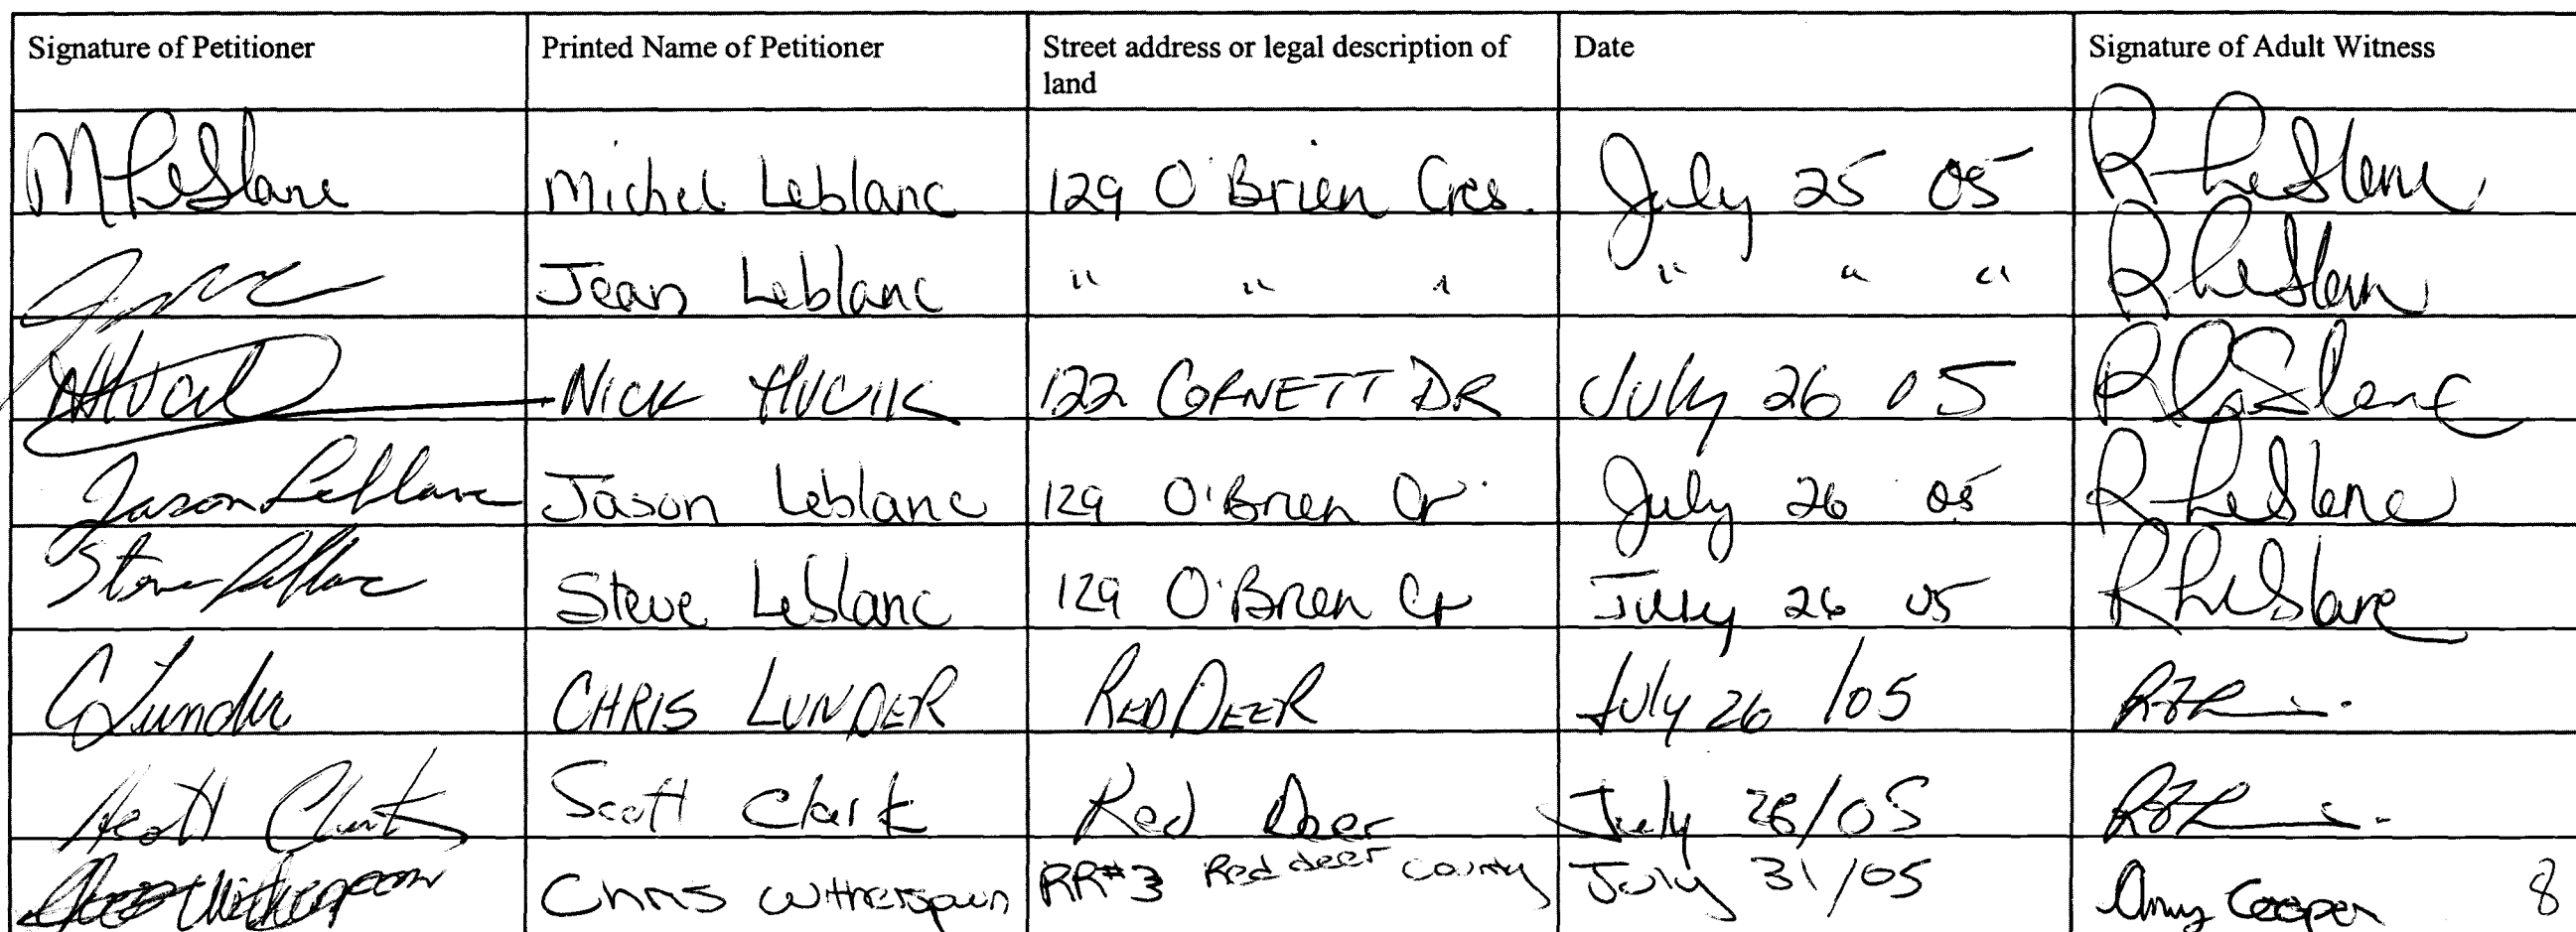 Signature of Petitioner Printed Name of Petitioner Street address or legal description of land Date Signature of Adult Witness
M LeBlanc Michel Leblanc 129 O'Brien Cres. July 25 05 R LeBlanc
Jean Leblanc " " " " " " R LeBlanc
NICK HUCIK 122 CORNETT DR July 26 05 R LeBlanc
Jason LeBlanc Jason Leblanc 129 O'Brien Cr. July 26 05 R LeBlanc
Steve LeBlanc Steve Leblanc 129 O'Brien Cr July 26 05 R LeBlanc
C Lunder CHRIS LUNDER RED DEER July 26 /05
Scott Clark Scott Clark Red Deer July 26/05
Chris Witherspoon Chris Witherspoon RR#3 Red deer County July 31/05 Amy Cooper 8